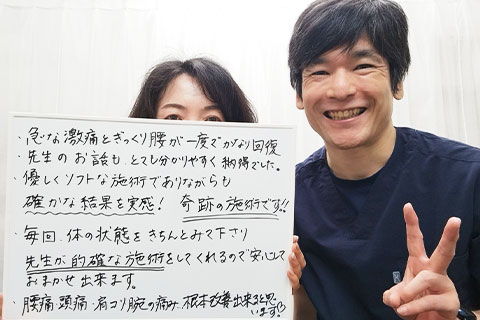 ・急な激痛とぎっくり腰が一度でかなり回復
・先生のお話もとても分かりやすく納得でした。
・優しくソフトな施術でありながらも
確かな結果を実感! 奇跡の施術です!!
・毎回、体の状態をきちんとみて下さり
先生が的確な施術をしてくれるので安心して
おまかせ出来ます。
・腰痛・頭痛・肩コリ腕の痛み、根本改善出来ると思
います!